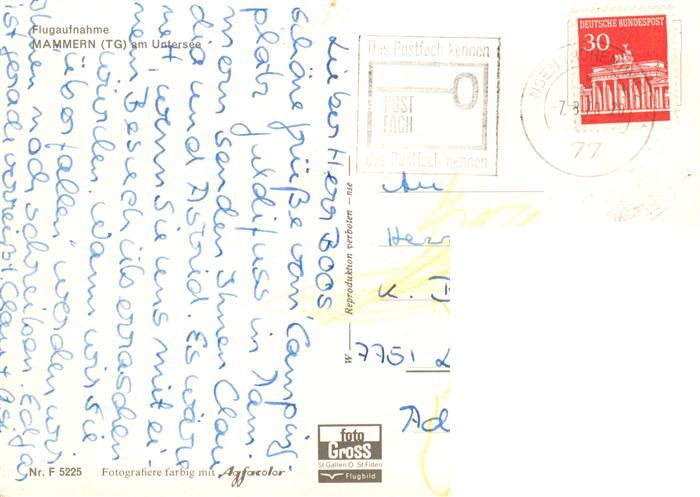 Flugaufnahme
MAMMERN (TG) am Untersee
Lieber Herr Boos,
schöne Grüße vom Camping-
platz Guldifuss in Mam-
mern senden Ihnen Clau-
dia und Astrid. Es wäre
nett, wenn Sie uns mit ei-
nem Besuch überraschen
würden. Wann wir Sie
"überfallen" werden wir
Ihnen noch schreiben. Edgar
ist gerade verreist.
Nr. F 5225 Fotografiere farbig mit Agfacolor
W — Reproduktion verboten - nse
foto
Gross
St Gallen O St.Fiden
Flugbild
Das Postfach kennen
POST
FACH
das Postfach nennen
DEUTSCHE BUNDESPOST
30
77
An
Herr
K.
7751